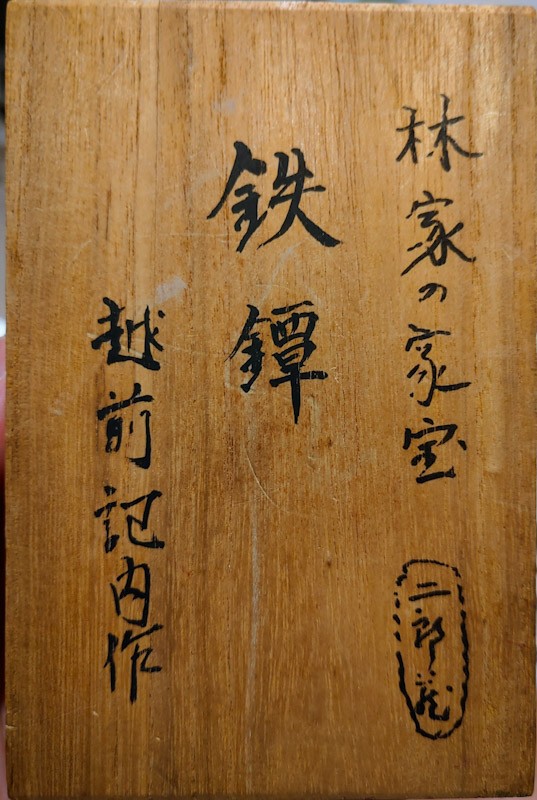 林家の家宝
二郎蔵
鉄鐔
越前記内作